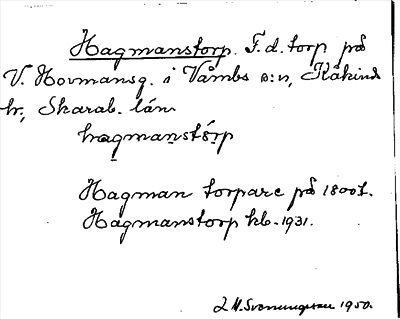 Hagmanstorp. F.d. torp på
V. Hovmansg. i Våmbs s:n, Kåkind
hr, Skarab. län
hagmanstórp
Hagman torpare på 1800t.
Hagmanstorp kb. 1931.
1950.